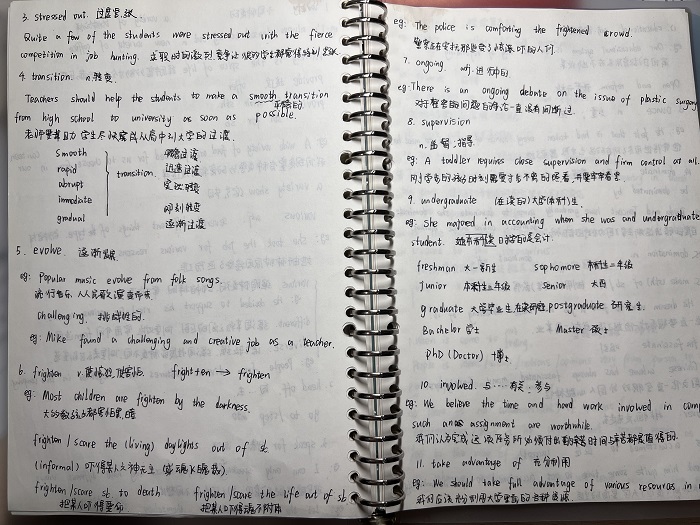 3. stressed out. 过度紧张.
Quite a few of the students were stressed out with the fierce
competition in job hunting.
4. transition. n.转变
Teachers should help the students to make a smooth transition
平稳的
from high school to university as soon as possible.
老师要帮助学生尽快完成从高中到大学的过渡.
smooth 平稳过渡
rapid 迅速过渡
abrupt transition.
immediate 即刻转变
gradual 逐渐过渡
5. evolve. 逐渐演变
eg: Popular music evolve from folk songs.
流行音乐
challenging. 挑战性的.
eg: Mike found a challenging and creative job as a teacher.
6. frighten v.使惊恐,使害怕. fright+en → frighten
eg: Most children are frighten by the darkness.
大多数孩子都害怕黑暗
frighten / scare the (living) daylights out of sb
(informal) 吓得某人
frighten / scare sb to death frighten / scare the life out of sb
把某人吓得要命 把某人吓得魂不附体
eg: The police is comforting the frightened crowd.
警察在安抚那些受了惊吓的人们.
7. ongoing. adj. 进行中的
eg: There is an ongoing debate on the issue of plastic surgery
对于整容问题的争论一直没有间断过.
8. supervision
n. 监督,指导.
eg: A toddler requires close supervision and firm control at all
9. undergraduate (在读的)大学本科生.
eg: She majored in accounting when she was and undergraduate
student. 她在读的专业是会计.
freshman 大一新生 sophomore 本科生二年级
Junior 本科生三年级 senior 大四
graduate 大学毕业生 postgraduate 研究生.
Bachelor 学士 Master 硕士
PhD (Doctor) 博士
10. involved 与……有关,参与
eg: We believe the time and hard work involved in com
such an assignment are worthwhile.
我们认为完成这项任务所必须付出的时间与辛苦都是值得的.
11. take advantage of 充分利用
eg: We should take full advantage of various resources in
我们应该充分利用大学里的各种资源